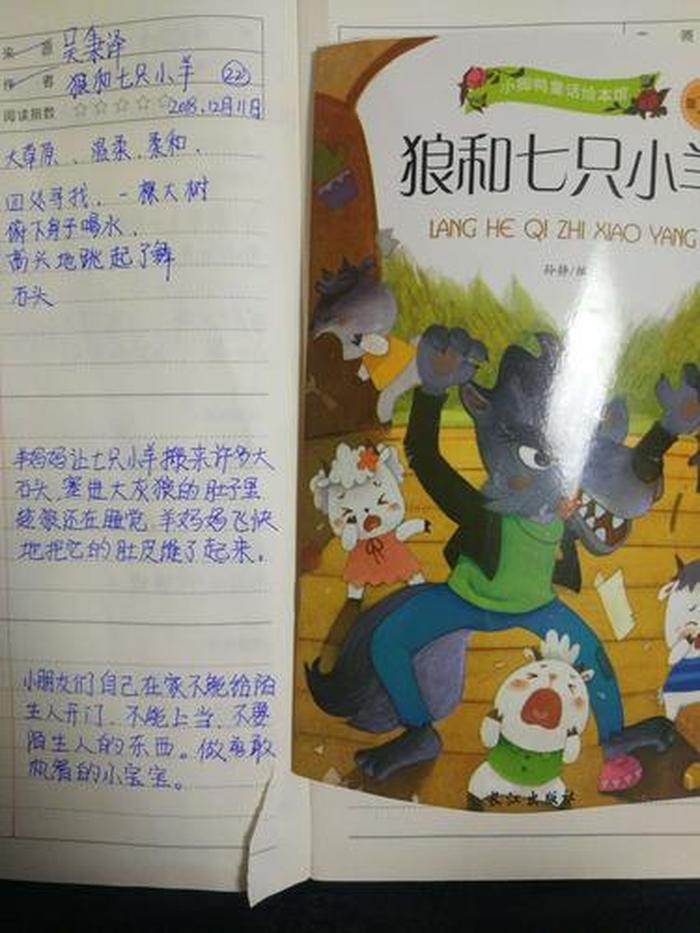 吴秉泽
作者 狼和七只小羊 22
阅读指数 ☆☆☆☆☆ 2018.12月11日
大草原、温柔.柔和.
回处寻找.一棵大树
俯下身子喝水.
高兴地跳起了舞
石头
羊妈妈让七只小羊搬来许多大
石头.塞进大灰狼的肚子里
趁狼还在睡觉.羊妈妈飞快
地把它的肚皮缝了起来.
小朋友们自己在家不能给陌
生人开门.不能上当.不要
陌生人的东西。做勇敢
机智的小宝宝。
小脚鸭童话绘本馆
狼和七只小羊
LANG HE QI ZHI XIAO YANG
孙静/编
长江出版社